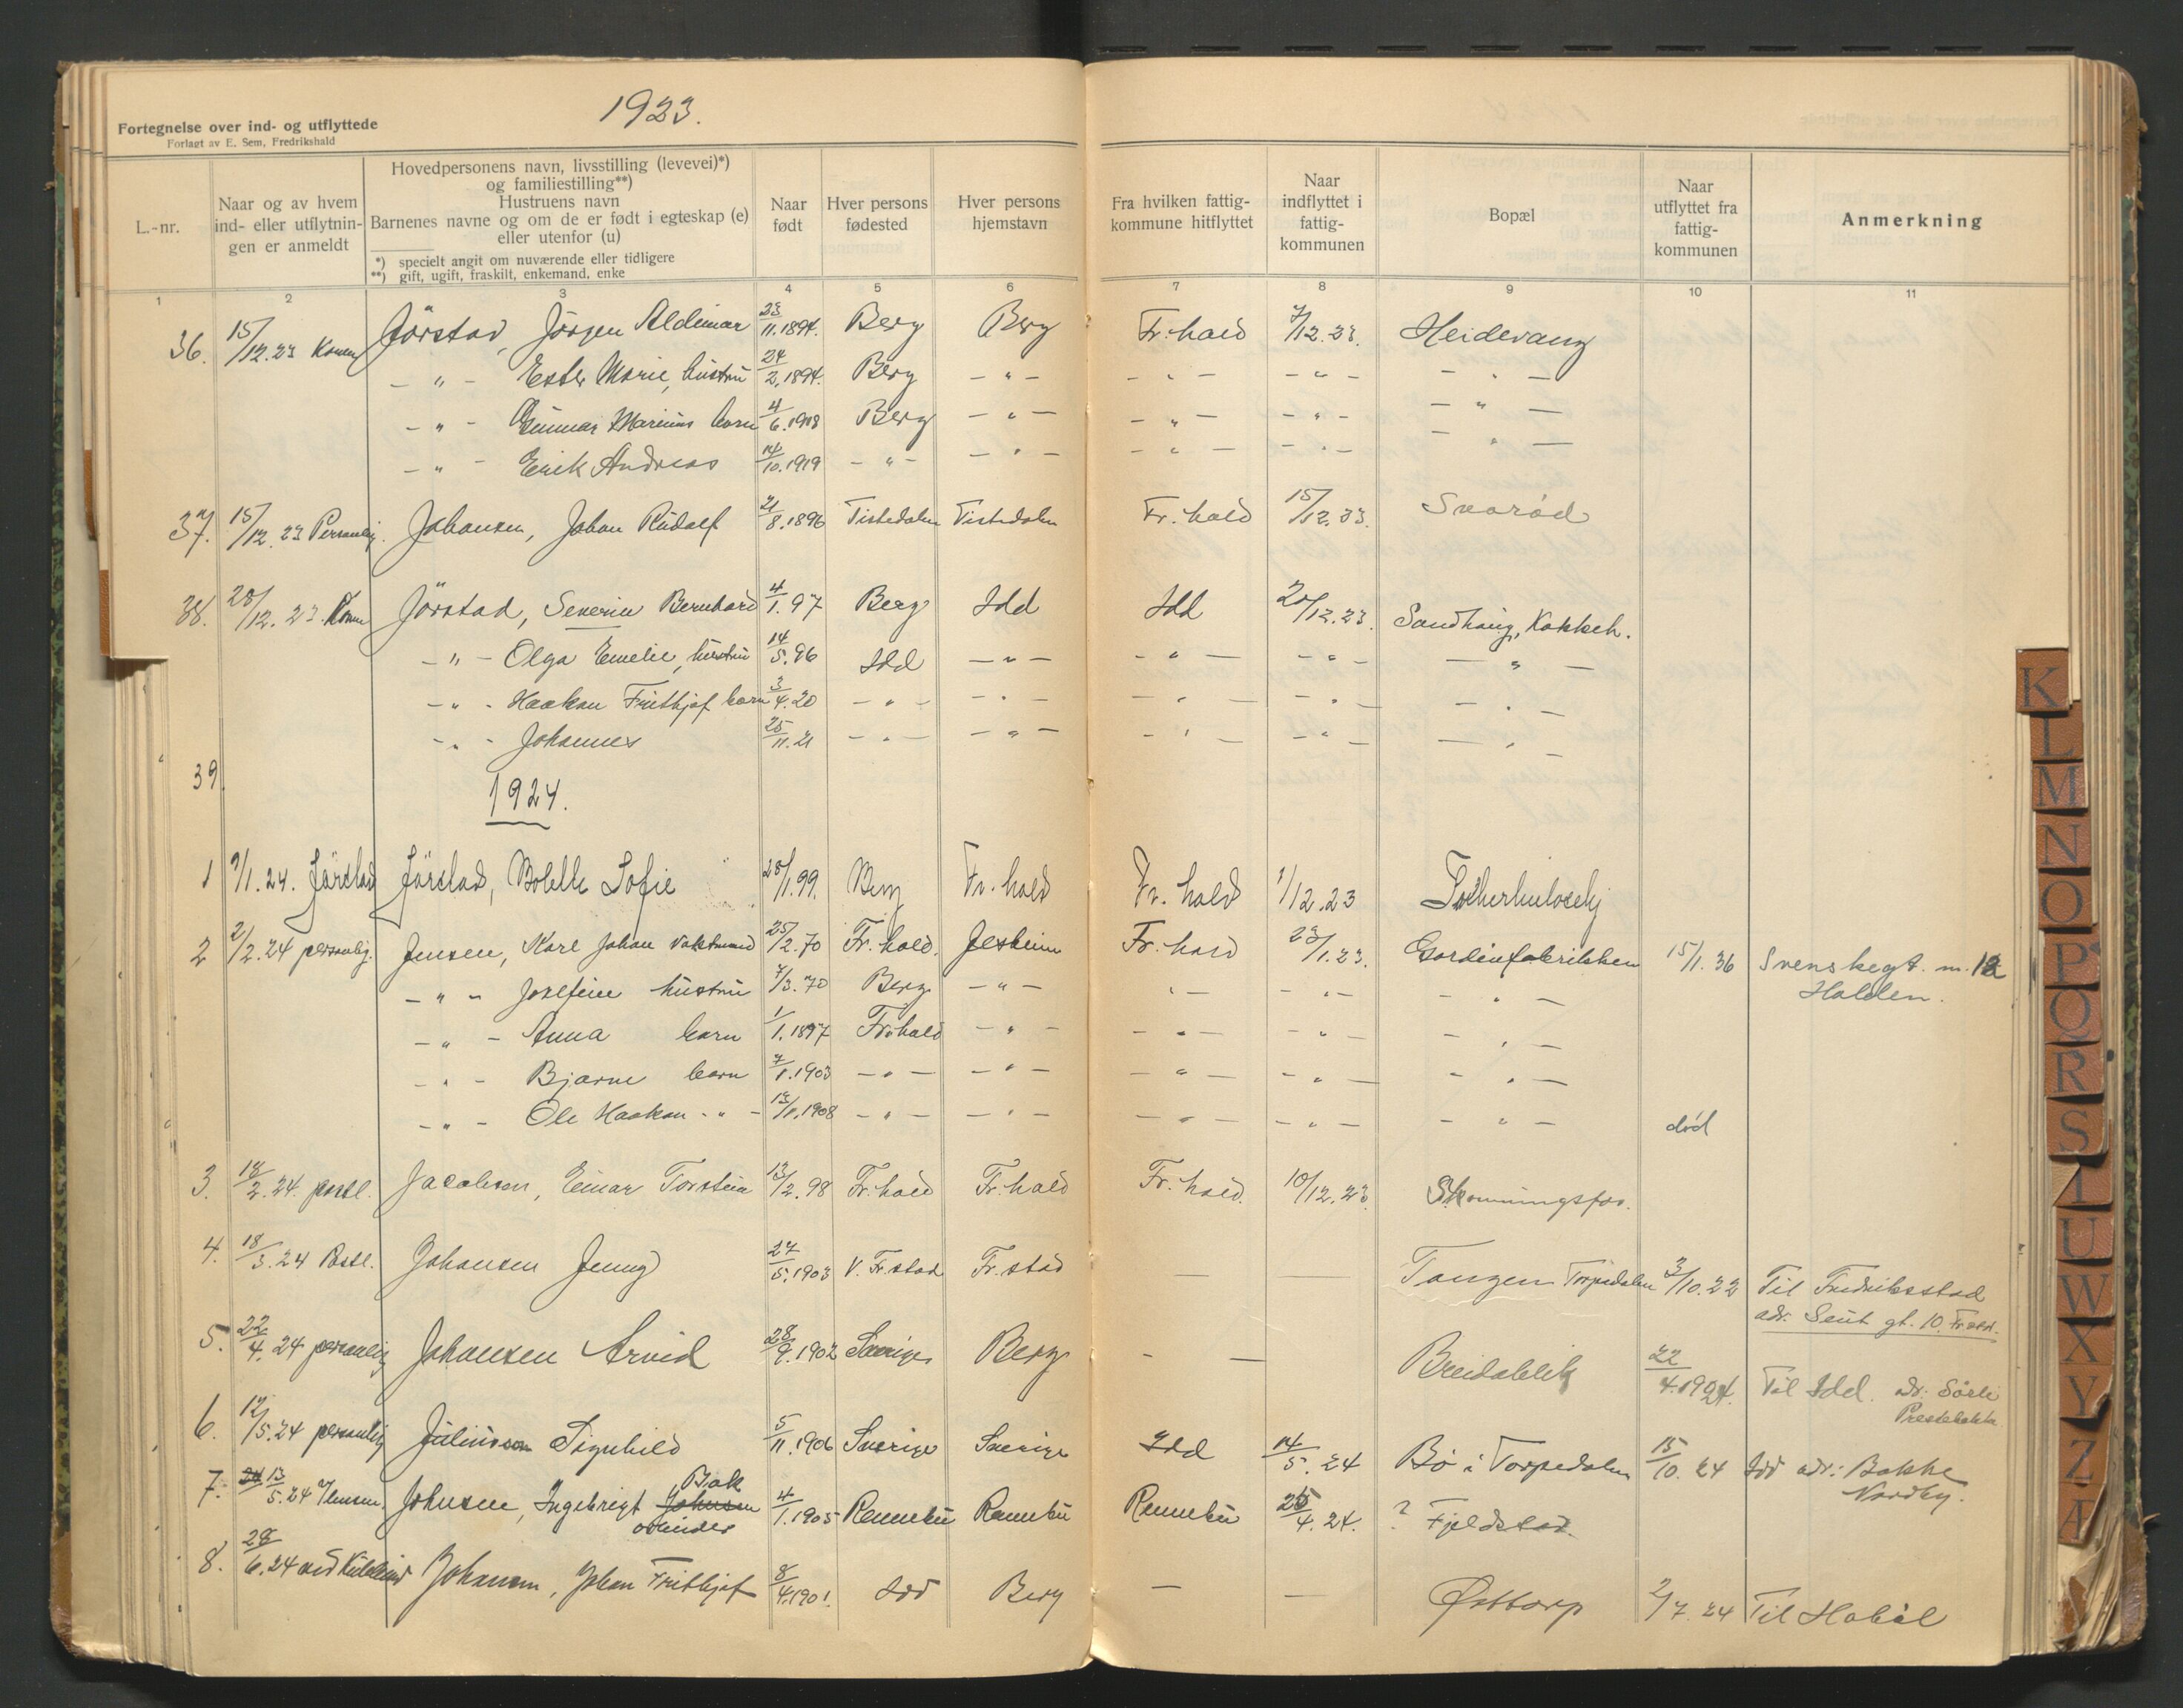 1923.
Fortegnelse over ind- og utflyttede
Forlagt av E. Sem, Fredrikshald
L.-nr.
Naar og av hvem ind- eller utflytnin- gen er anmeldt
Hovedpersonens navn, livsstilling (levevei)*)
og familiestilling**)
Hustruens navn
Barnenes navne og om de er født i egteskap (e)
eller utenfor (u)
*) specielt angit om nuværende eller tidligere
**) gift, ugift, fraskilt, enkemand, enke
Naar født
Hver persons fødested
Hver persons hjemstavn
Fra hvilken fattig- kommune hitflyttet
Naar indflyttet i fattig- kommunen
Bopæl
Naar utflyttet fra fattig- kommunen
Anmerkning
1 2 3 4 5 6 7 8 9 10 11
36. 15/12.23 Jörstad, Jörgen Aldimar 23/11.1894. Berg Berg Fr.hald 7/12.23. Heidevang
- " - Ester Marie, hustru 24/2.1894. Berg - " - - " - - " - - " -
- " - Gunnar Marinius barn 4/6.1918 Berg - " - - " - - " - - " -
- " - Erik Andreas 14/10.1919 - " - - " - - " - - " - - " -
37. 15/12.23 Personlig. Johansen, Johan Rudolf 21/8.1896 Tistedalen Tistedalen Fr.hald 15/12.23. Svarød
38. 28/12.23. Jörstad, Severin Bernhard 4/1.97 Berg Idd Idd 20/12.23. Sandhaug, Kokkeh.
- " - Olga Emelie, hustru 14/5.96 Idd - " - - " - - " - - " -
- " - Haakon Frithjof barn 3/4.20 - " - - " - - " - - " - - " -
- " - Johannes 25/11.21 - " - - " - - " - - " - - " -
39.
1924.
1 9/1.24. Jörstad Jörstad, Bolette Sofie 28/1.99. Berg Fr.hald Fr.hald 1/12.23
2 2/2.24 personlig. Jensen, Karl Johan Vaktmand 25/2.70 Fr.hald. Jesheim Fr.hald 23/1.23. Gardinfabrikken 15/1.36 Svenskegt. nr. 12
Halden.
- " - Josefine hustru 7/3.70 Berg - " - " - - " - - " -
- " - Anna barn 1/1.1897 Fr.hald - " - - " - - " - - " -
- " - Bjarne barn 7/1.1903 - " - - " - - " - - " - - " -
- " - Ole Haakon - " - 13/11.1908 - " - - " - - " - - " - - " - død
3. 18/2.24. postl. Jacobsen, Einar Torstein 13/2.98 Fr.hald Fr.hald Fr.hald. 10/12.23.
4. 18/3.24 Postl. Johansen Jenny 27/5.1903 V. Fr.stad Fr.stad — — Tangen Torpedalen 3/10.22 Til Fredriksstad
adr. gt. 10. Fr.stad.
5. 22/4.24 personlig Johansen Arvid 28/9.1902 Sverige Berg - — Breidablik 22/4.1924. Til Idd. adr: Sörli
Prestebakke
6. 12/5.24 personlig Juliusson Signhild 5/11.1906 Sverige Sverige Idd 14/5.24 Bö i Torpedalen 15/10.24 Idd adr: Bakke
Nordby.
7. 13/5.24 Johnsen, Ingebrigt Johnsen Bak 4/1.1905 Rennebu Rennebu Rennebu 25/4.24. ? Fjeldstad.
8. 28/6.24 Johansen, Johan Frithjof 8/4.1901. Idd Berg — — Østtorp 2/7.24 Til Hobøl
K
L
M
N
O
P
Q
R
S
T
U
W
X
Y
Z
Æ